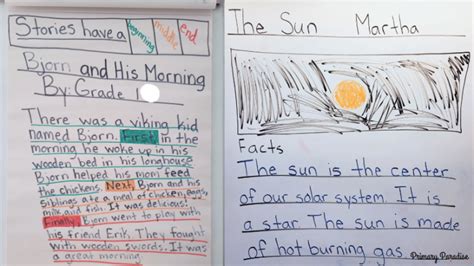 Stories have a beginning middle end
Bjorn and His Morning
By: Grade 1
There was a viking kid
named Bjorn. First in the
morning he woke up in his
wooden bed in his longhouse
Bjorn helped his mom feed
the chickens. Next, Bjorn and his
siblings ate a meal of chicken, eggs,
milk and fish. It was delicious.
Finally, Bjorn went to play with
his friend Erik. They fought
with wooden swords. It was
a great morning.
The Sun Martha
Facts
The sun is the center
of our solar system. It is
a star. The sun is made
of hot burning gas.
Primary Paradise